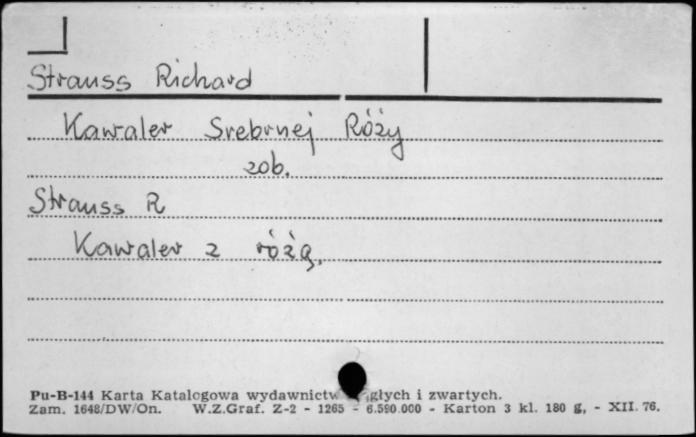 Strauss Richard
Kawaler Srebrnej Róży
zob.
Strauss R
Kawaler z różą.
Pu-B-144 Karta Katalogowa wydawnictw głych i zwartych.
Zam. 1648/DW/On. W.Z.Graf. Z-2 - 1265 - 6.590.000 - Karton 3 kl. 180 g, - XII. 76.